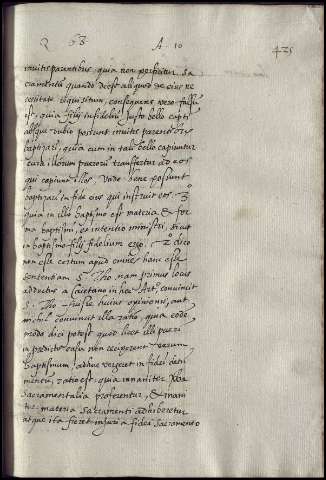 Q 68 A. 10 425
invitis parentibus, quia non perficitur sa
cramentũ quando deest aliquod de eius ne
cessitate requisitum, consequens vero falsũ
est, quia filij infideliũ justo bello capti
absque dubio possunt invitis parentibus
baptizari, quia cum in tali bello capiuntur
cura illorum puerorũ transfertur ad eos
qui capiunt illos. Unde bene possunt
baptizari in fide eius qui instruit eos. 3º
quia in illo baptismo est materia, & for
ma baptismi, et intentio ministri, sicut
in baptismo filij fidelium ergo. 2º dico
non esse certum apud omnes hanc esse
sententiam S. Tho. nam primus locus
adductus a Caietano in hoc Art. convincit
S. Tho. fuisse huius opinionis, aut
nihil convincit illa ratio, quia eode
modo dici potest quod licet illi pueri
in predicto casu non reciperent verum
baptismum, adhuc vergeret in fidei detri
mentum, ratio est. quia inaniter verba
sacramentalia proferentur, & inani
ter materia sacramenti adhiberetur
atque ita fieret injuria fidei, sacramento